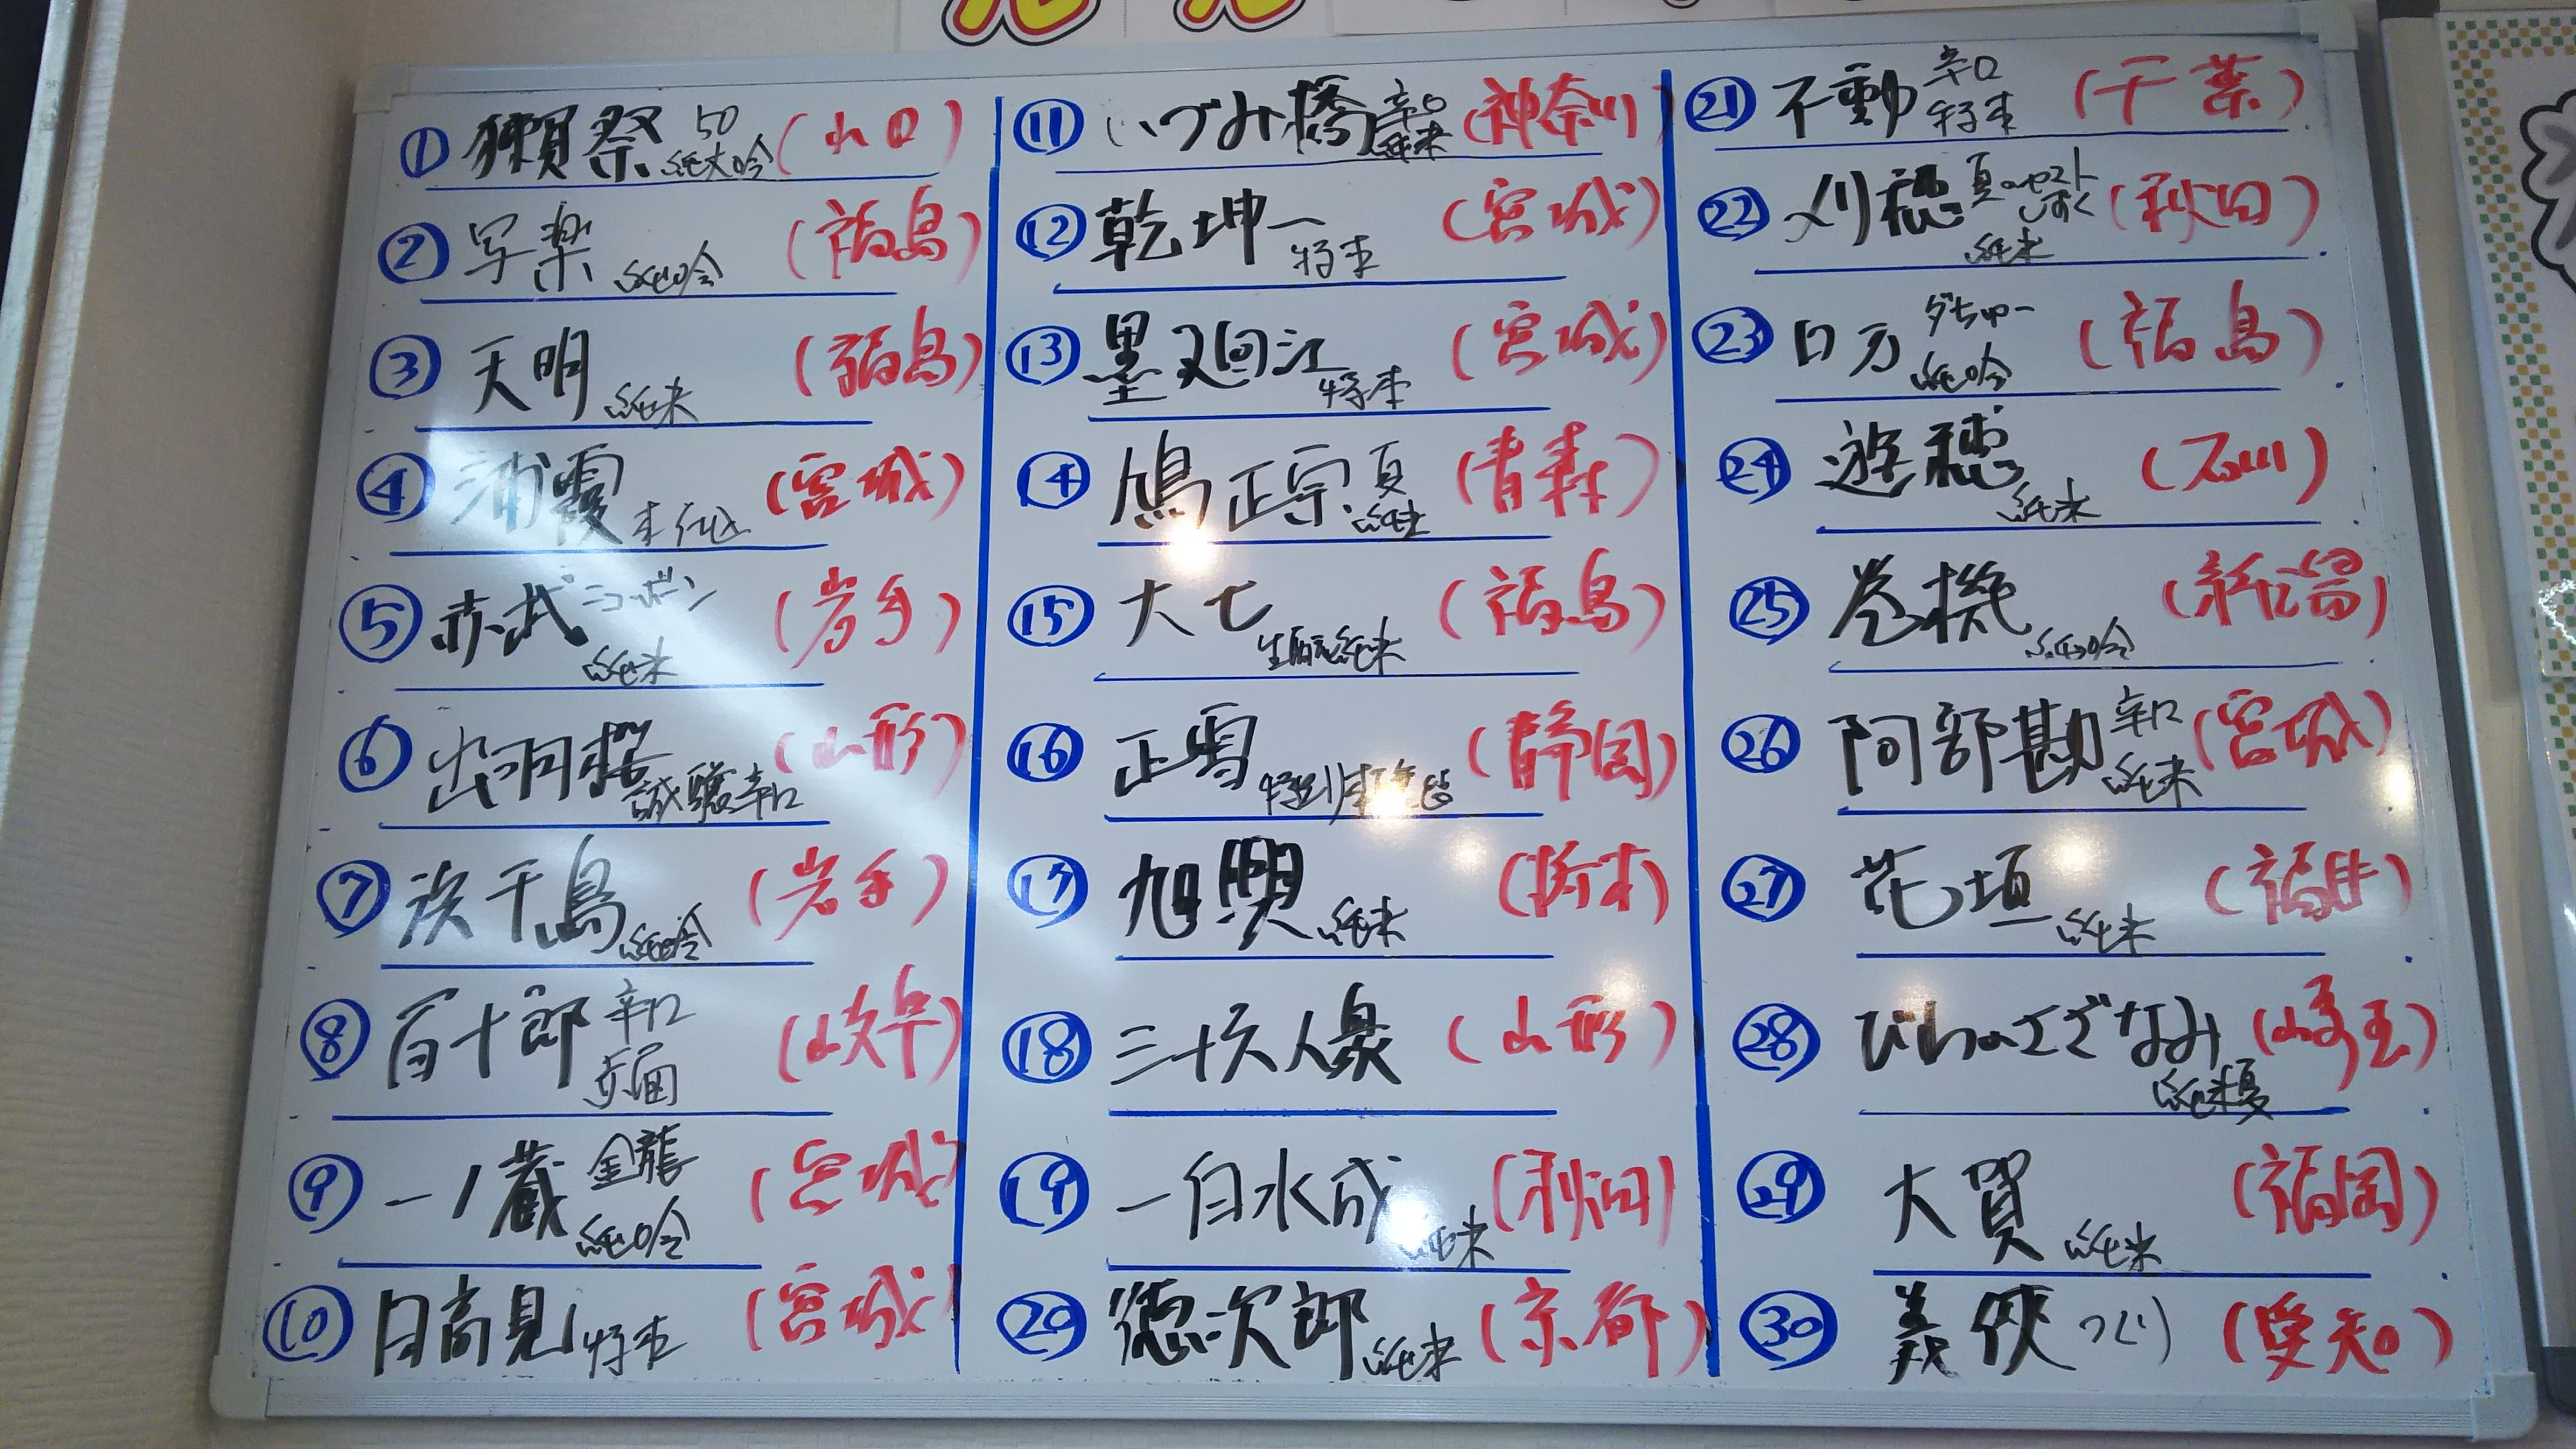 ① 獺祭 50 純大吟 (山口)
② 写楽 純吟 (福島)
③ 天明 純米 (福島)
④ 浦霞 本仕込 (宮城)
⑤ 赤武 純米 (岩手)
⑥ 出羽桜 誠醸辛口 (山形)
⑦ 浜千鳥 純吟 (岩手)
⑧ 百十郎 辛口 (岐阜)
⑨ 一ノ蔵 金龍 純吟 (宮城)
⑩ 日高見 特本 (宮城)
⑪ いづみ橋 辛口 純米 (神奈川)
⑫ 乾坤一 特本 (宮城)
⑬ 墨廼江 特本 (宮城)
⑭ 鳩正宗 夏 純米 (青森)
⑮ 大七 生酛純米 (福島)
⑯ 正雪 特別本醸造 (静岡)
⑰ 旭興 純米 (栃木)
⑱ 三十六人衆 (山形)
⑲ 一白水成 純米 (秋田)
⑳ 徳次郎 純米 (京都)
㉑ 不動 辛口 特本 (千葉)
㉒ 刈穂 夏のセスト しずく 純米 (秋田)
㉓ ロ万 ダぢゅー 純吟 (福島)
㉔ 遊穂 純米 (石川)
㉕ 巻機 純吟 (新潟)
㉖ 阿部勘 辛口 純米 (宮城)
㉗ 花垣 純米 (福井)
㉘ びわのさざなみ 純米夏 (埼玉)
㉙ 大賀 純米 (福岡)
㉚ 義侠 つくり (愛知)